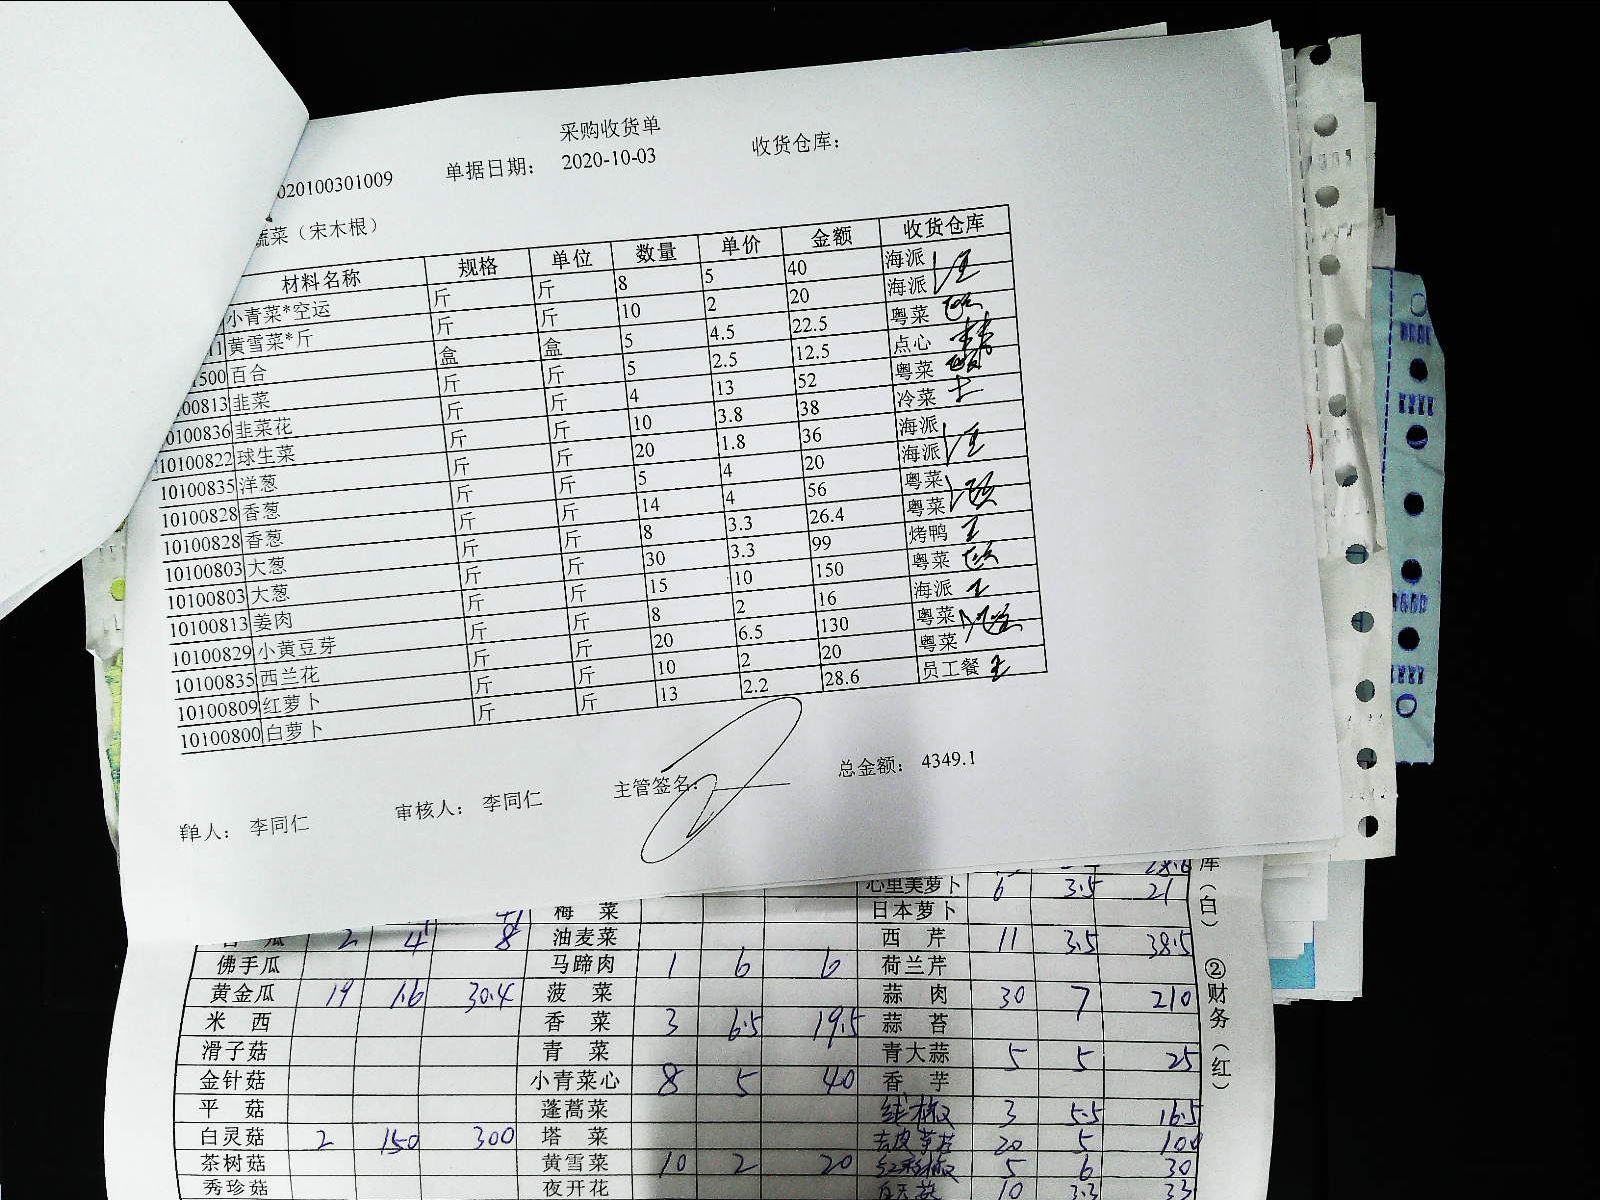 采购收货单
020100301009 单据日期： 2020-10-03 收货仓库：
蔬菜（宋木根）
材料名称 规格 单位 数量 单价 金额 收货仓库
小青菜*空运 斤 斤 8 5 40 海派
11 黄雪菜*斤 斤 斤 10 2 20 海派
1500 百合 盒 盒 5 4.5 22.5 粤菜
00813 韭菜 斤 斤 5 2.5 12.5 点心
0100836 韭菜花 斤 斤 4 13 52 粤菜
10100822 球生菜 斤 斤 10 3.8 38 冷菜
10100835 洋葱 斤 斤 20 1.8 36 海派
10100828 香葱 斤 斤 5 4 20 海派
10100828 香葱 斤 斤 14 4 56 粤菜
10100803 大葱 斤 斤 8 3.3 26.4 粤菜
10100803 大葱 斤 斤 30 3.3 99 烤鸭
10100813 姜肉 斤 斤 15 10 150 粤菜
10100829 小黄豆芽 斤 斤 8 2 16 海派
10100835 西兰花 斤 斤 20 6.5 130 粤菜
10100809 红萝卜 斤 斤 10 2 20 粤菜
10100800 白萝卜 斤 斤 13 2.2 28.6 员工餐
单人： 李同仁 审核人： 李同仁 主管签名： 总金额： 4349.1
心里美萝卜 6 3.5 21
梅菜 日本萝卜
瓜 2 4 8 油麦菜 西芹 11 3.5 38.5
佛手瓜 马蹄肉 1 6 6 荷兰芹
黄金瓜 19 1.6 30.4 菠菜 蒜肉 30 7 210
米西 香菜 3 6.5 19.5 蒜苔
滑子菇 青菜 青大蒜 5 5 25
金针菇 小青菜心 8 5 40 香芋
平菇 蓬蒿菜 线椒 3 5.5 16.5
白灵菇 2 150 300 塔菜 20 5 100
茶树菇 黄雪菜 10 2 20 红彩椒 5 6 30
秀珍菇 夜开花 10 3.3 33
库（白）
②财务（红）